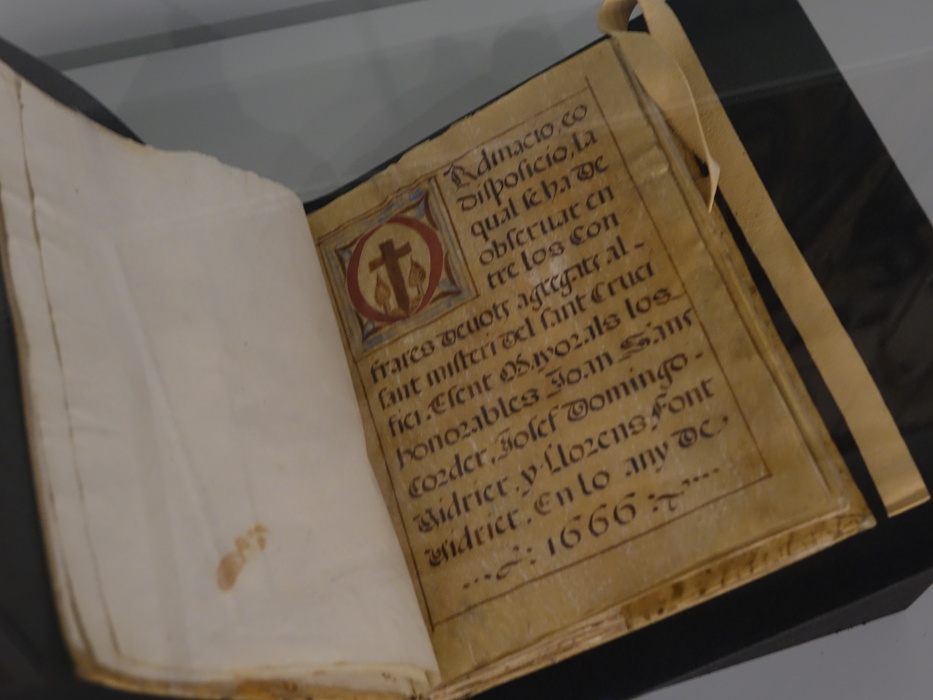 ORdinacio, co
disposicio, la
qual se ha de
observar en
tre los Con
frares devots agregats al-
sant misteri del sant Cruci
fici. Esent Mayorals los
honorables Joan Sans
Corder, Josef Domingo-
Vidrier, y Llorens Font
Vidrier. En lo any de
1666